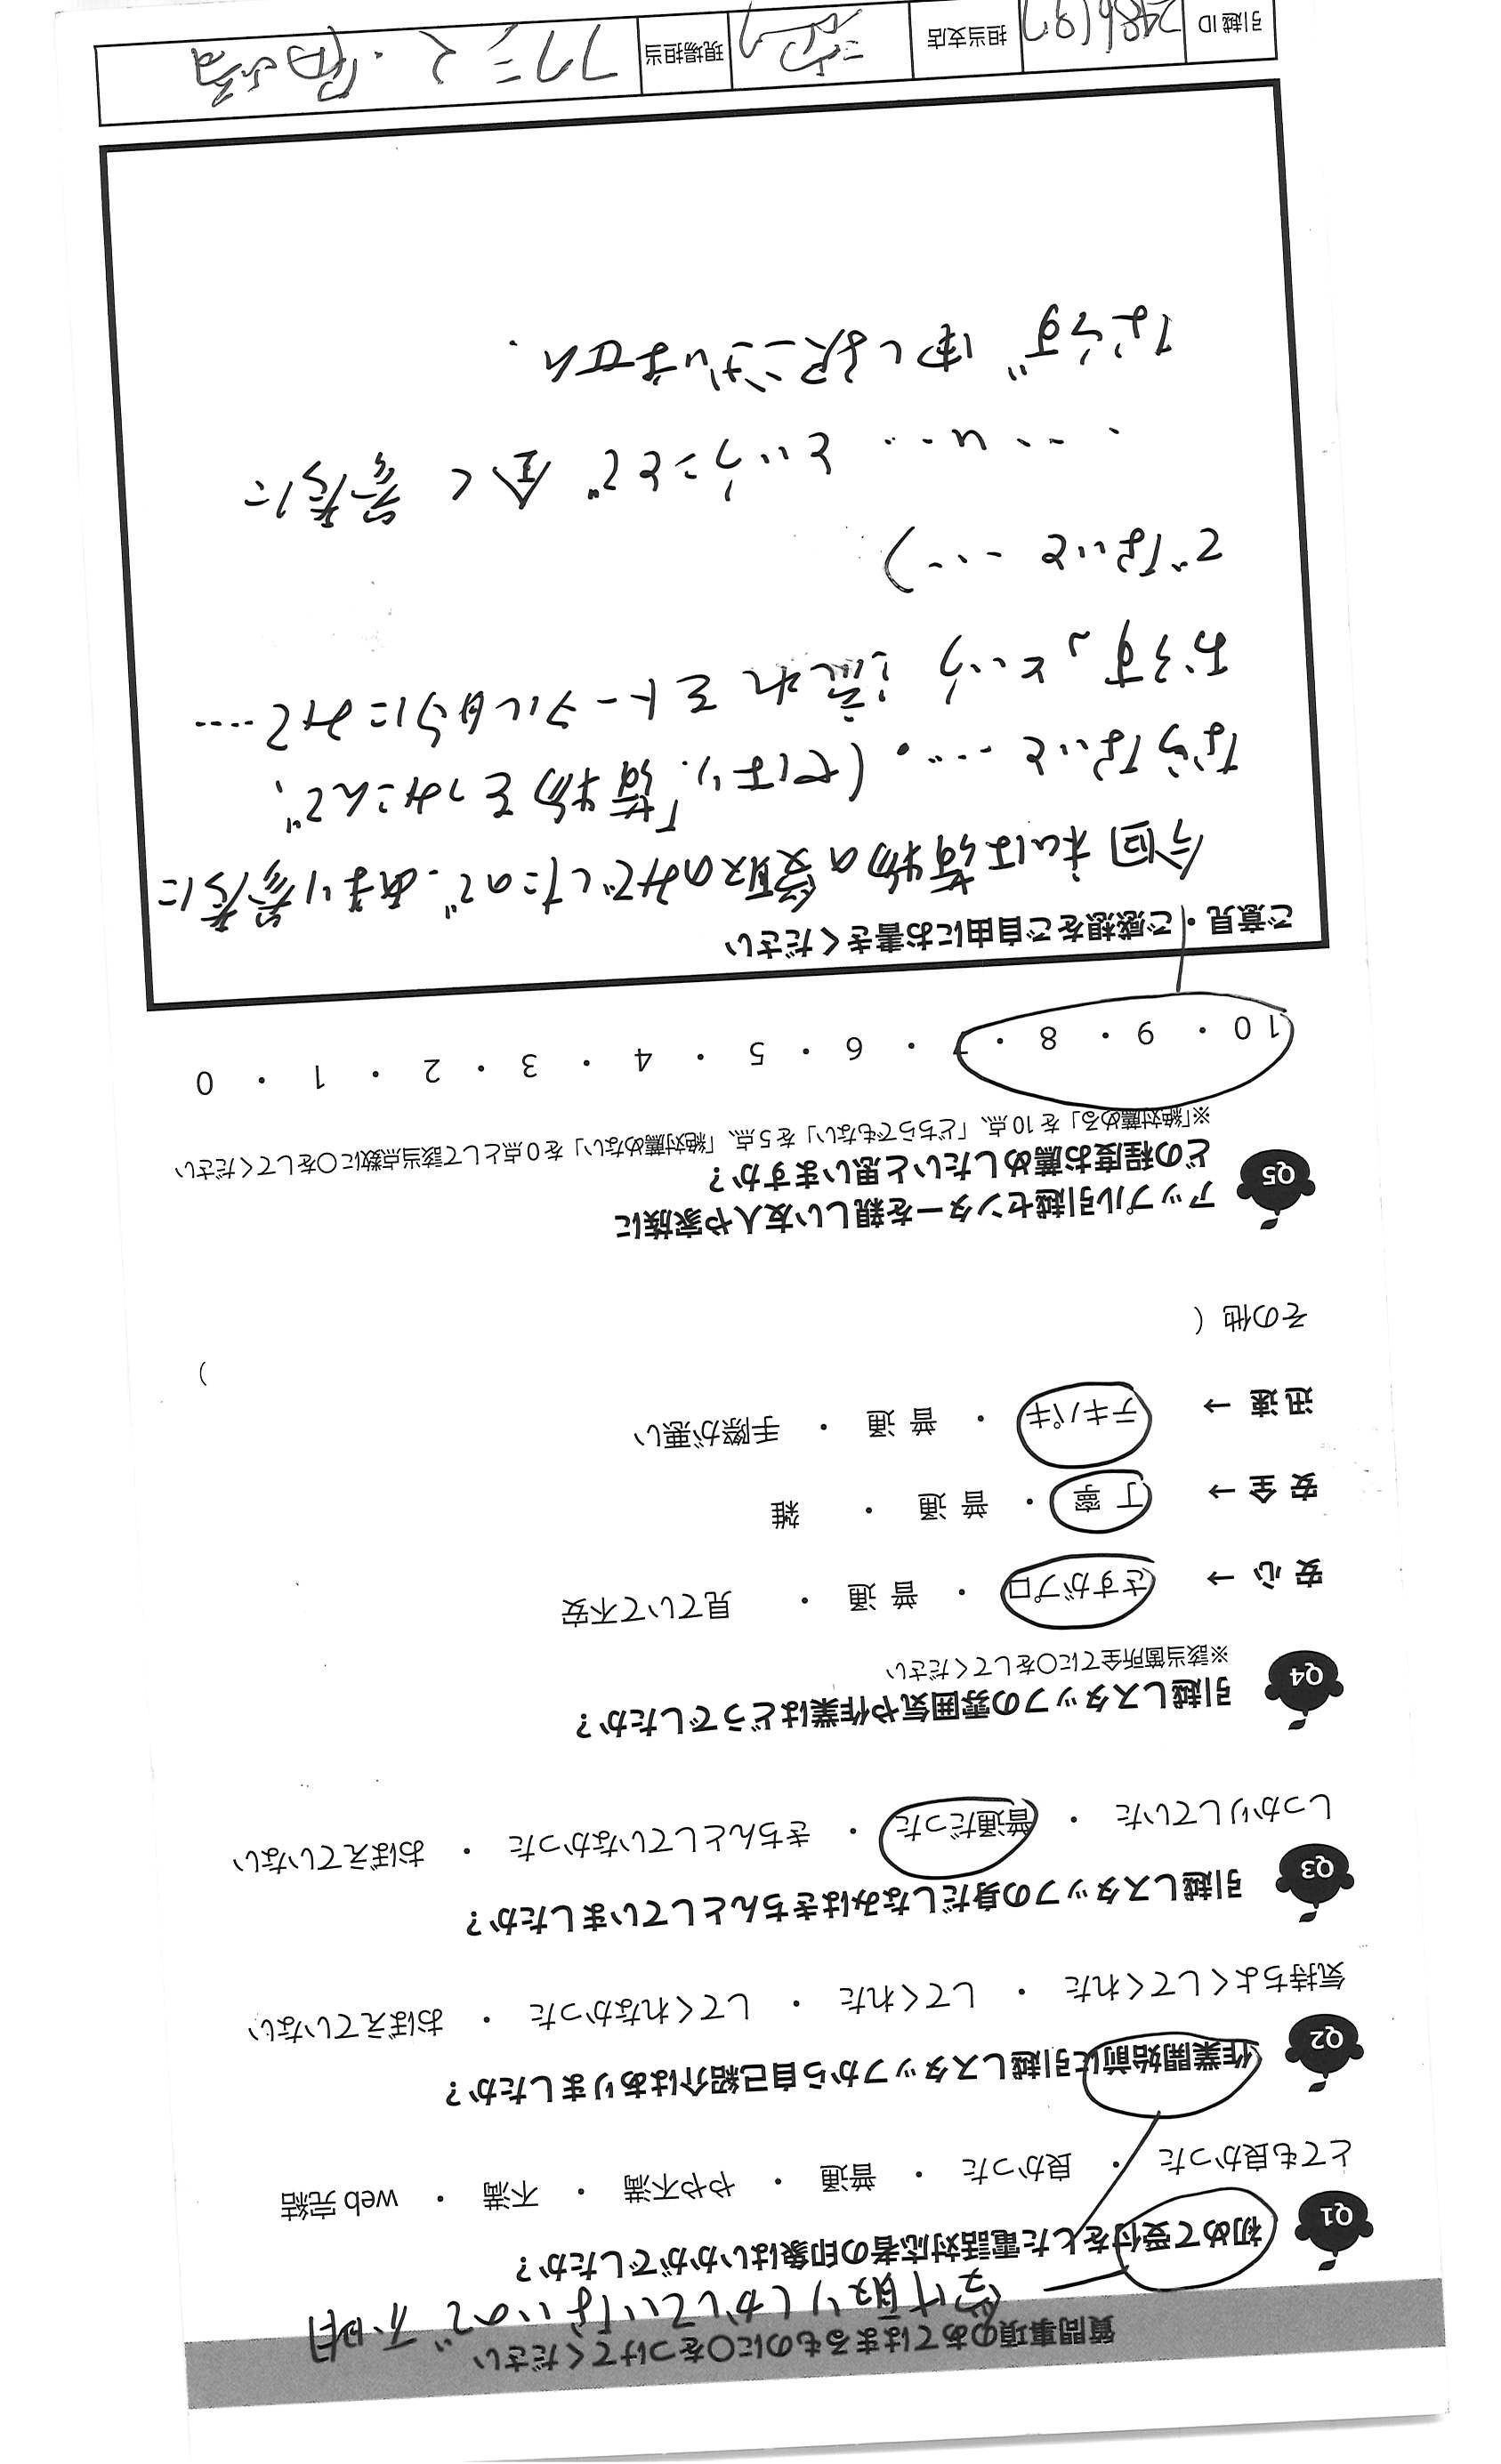 質問事項のあてはまるものに〇をつけてください
受け取りしかしていないので不明
Q1 初めて受付をした電話対応者の印象はいかがでしたか？
とても良かった ・ 良かった ・ 普通 ・ やや不満 ・ 不満 ・ web完結
Q2 作業開始前に引越しスタッフから自己紹介はありましたか？
気持ちよくしてくれた ・ してくれた ・ してくれなかった ・ おぼえていない
Q3 引越しスタッフの身だしなみはきちんとしていましたか？
しっかりしていた ・ 普通だった ・ きちんとしていなかった ・ おぼえていない
Q4 引越しスタッフの雰囲気や作業はどうでしたか？
※該当箇所全てに〇をしてください
安心 → さすがプロ ・ 普通 ・ 見ていて不安
安全 → 丁寧 ・ 普通 ・ 雑
迅速 → テキパキ ・ 普通 ・ 手際が悪い
その他（ ）
Q5 アップル引越センターを親しい友人や家族に
どの程度お薦めしたいと思いますか？
※「絶対薦める」を10点、「どちらでもない」を5点、「絶対薦めない」を0点として該当点数に〇をしてください
10 ・ 9 ・ 8 ・ 7 ・ 6 ・ 5 ・ 4 ・ 3 ・ 2 ・ 1 ・ 0
ご意見・ご感想をご自由にお書きください
今回私は荷物の受取のみでしたので、あまり参考に
ならないと……。（やはり、「荷物をつみこんで、
おろす」という流れをトータル的にみて……
でないと…）
……という ことで 全く 参考に
ならず 申し訳ございません.
引越ID 担当支店 現場担当